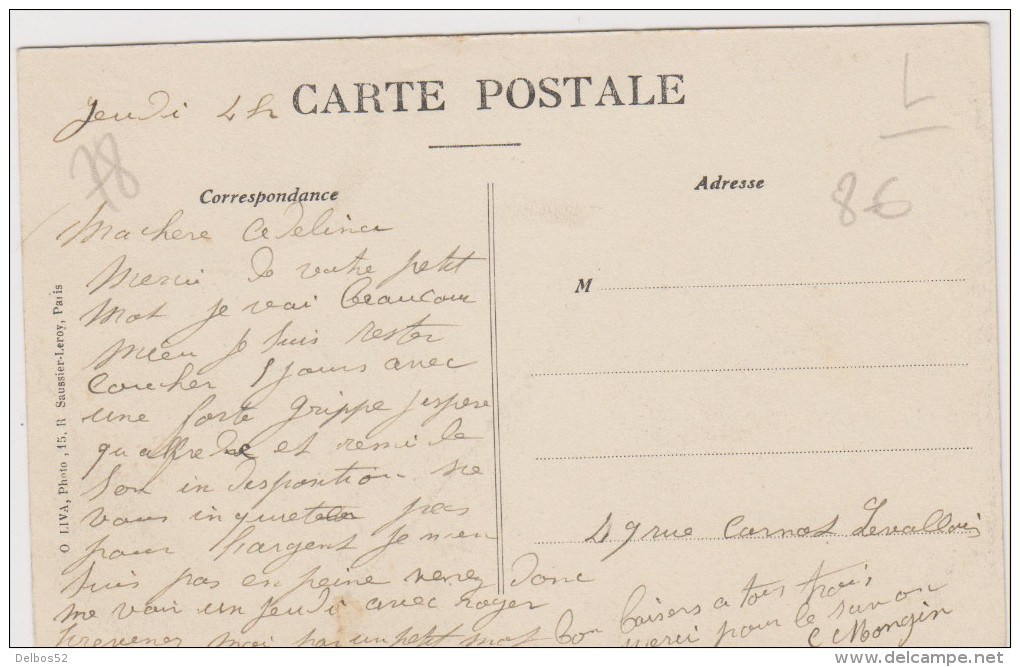 Jeudi 4h
CARTE POSTALE
L
78
Correspondance
Adresse
86
Ma chere Adelina
Merci de votre petit
mot je vai beaucoup
mieu je suis rester
coucher 8 jours avec
une forte grippe j'espere
qu alfrede et remi de
son indisposition ne
vous inquieter pas
pour l'argent je n'en
suis pas en peine venez donc
me voir un jeudi avec roger
prevenez moi par un petit mot
bon baisers a tous trois
merci pour le savon
C Mongin
M
49 rue Carnot Levallois
O LIVA, Photo, 15, R Saussier-Leroy, Paris
Delbos52
delcampe.net